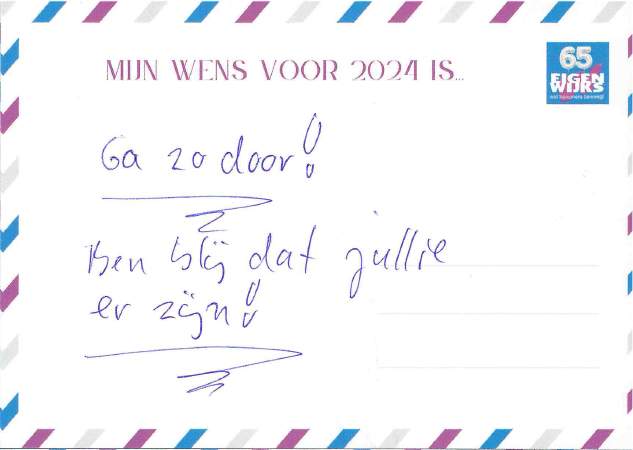 MIJN WENS VOOR 2024 IS...
65
EIGEN
WIJKS
Ga zo door!
Ben blij dat jullie
er zijn!